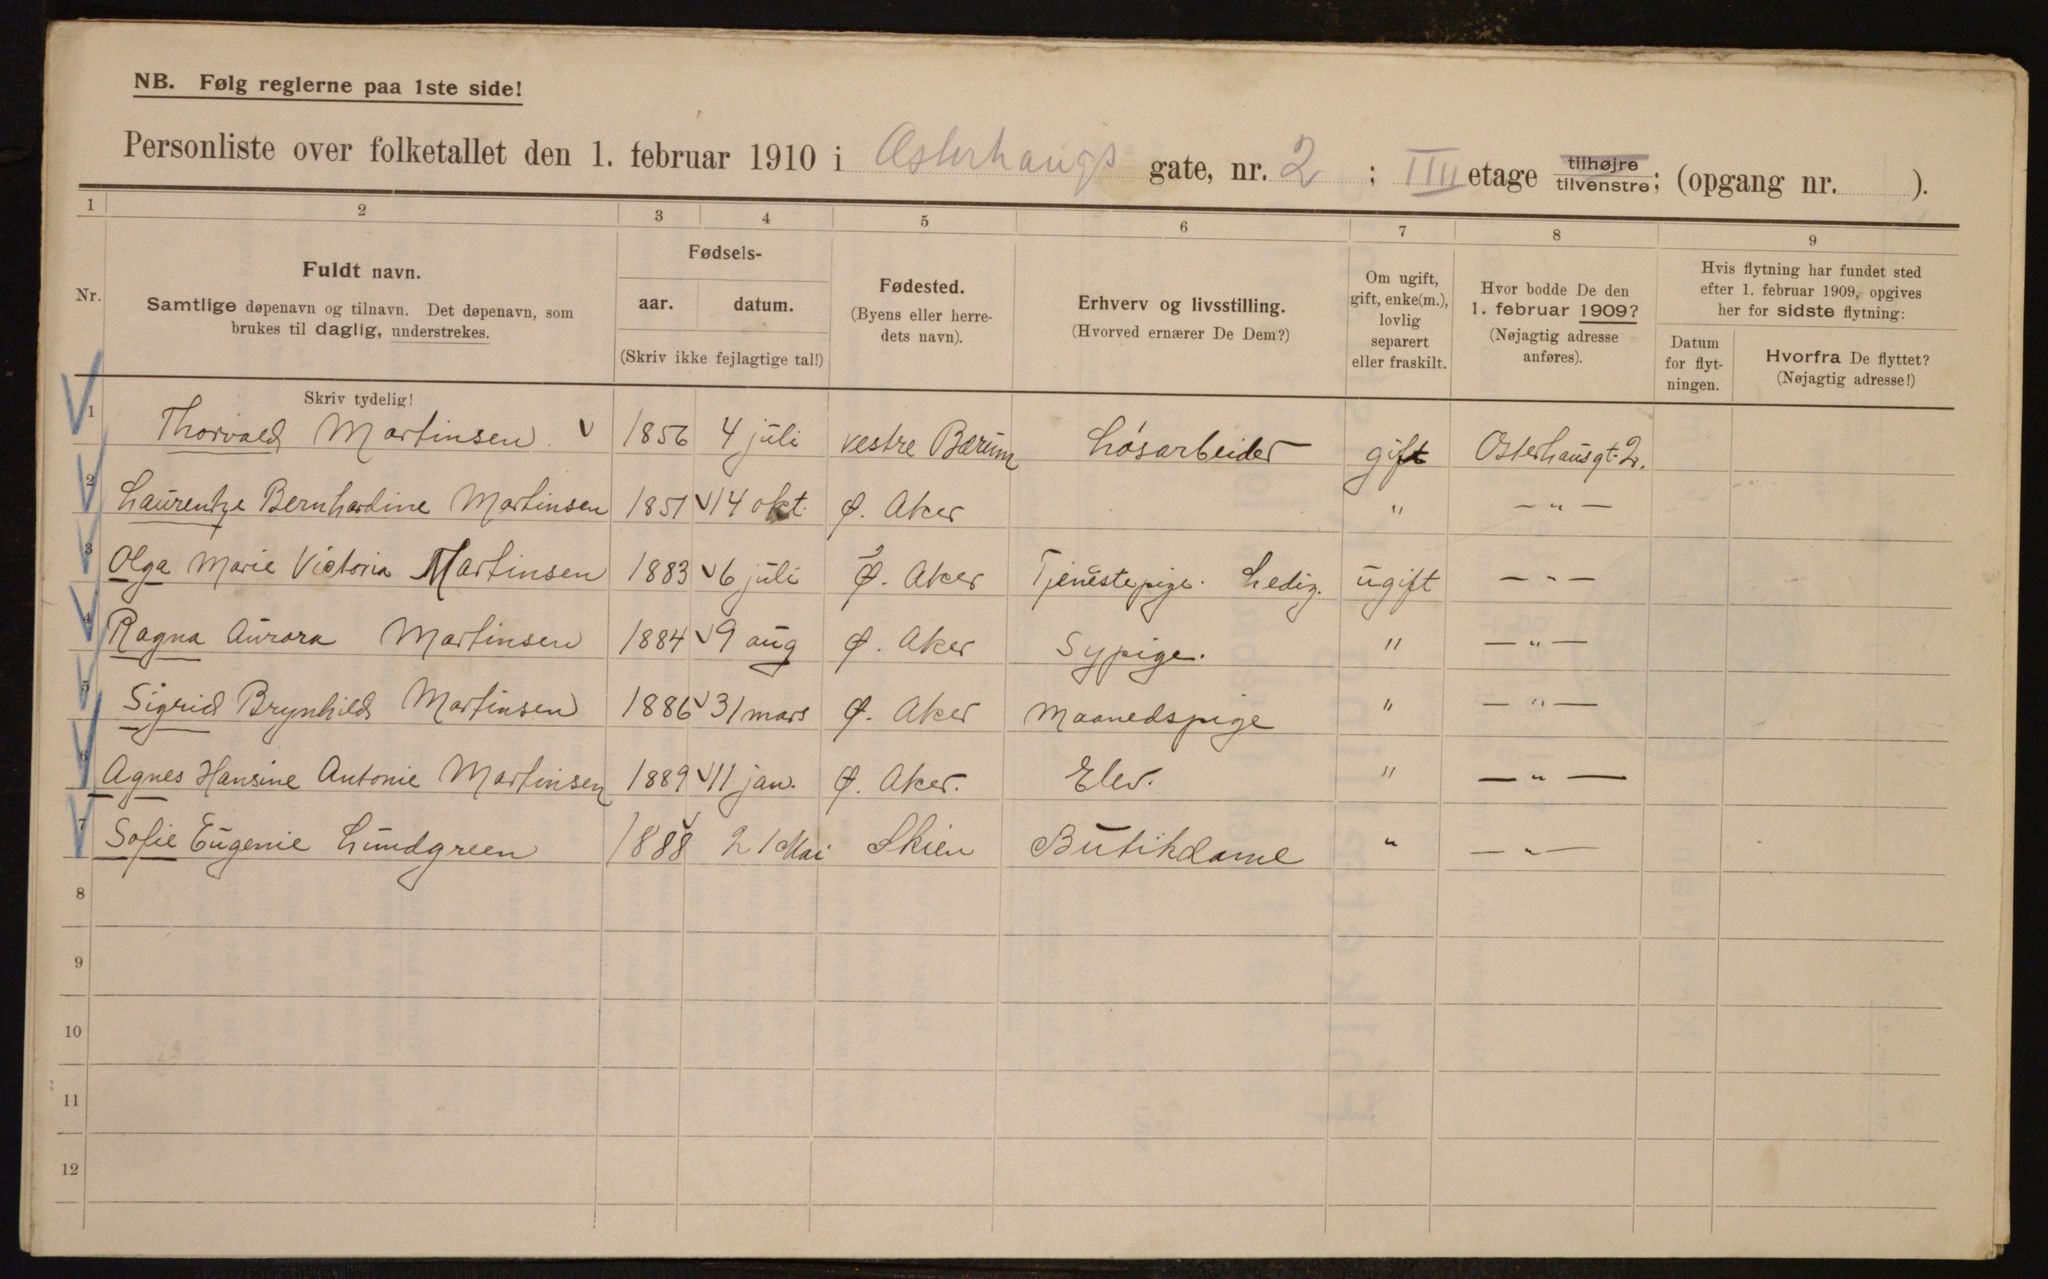 NB. Følg reglerne paa 1ste side!
Personliste over folketallet den 1. februar 1910 i Østerhaugs gate, nr. 2 ; III etage tilhøjre tilvenstre; (opgang nr. ).
1 2 3 4 5 6 7 8 9
Nr.
Fuldt navn.
Samtlige døpenavn og tilnavn. Det døpenavn, som
brukes til daglig, understrekes.
Skriv tydelig!
Fødsels-
aar. datum.
(Skriv ikke fejlagtige tal!)
Fødested.
(Byens eller herre-
dets navn).
Erhverv og livsstilling.
(Hvorved ernærer De Dem?)
Om ugift,
gift, enke(m.),
lovlig
separert
eller fraskilt.
Hvor bodde De den
1. februar 1909?
(Nøjagtig adresse
anføres).
Hvis flytning har fundet sted
efter 1. februar 1909, opgives
her for sidste flytning:
Datum
for flyt-
ningen.
Hvorfra De flyttet?
(Nøjagtig adresse!)
1 Thorvald Martinsen 1856 4 juli vestre Bærum Løsarbeider gift Osterhausgt. 2.
2 Laurentze Bernhardine Martinsen 1851 14 okt. Ø. Aker " — " —
3 Olga Marie Victoria Martinsen 1883 6 juli Ø. Aker Tjenestepige. Ledig. ugift — " —
4 Ragna Aurora Martinsen 1884 9 aug Ø. Aker Sypige. " — " —
5 Sigrid Brynhild Martinsen 1886 31 mars Ø. Aker Maanedspige " — " —
6 Agnes Hansine Antonie Martinsen 1889 11 jan. Ø. Aker. Elev. " — " —
7 Sofie Eugenie Lundgreen 1888 21 Mai Skien Butikdame " — " —
8
9
10
11
12